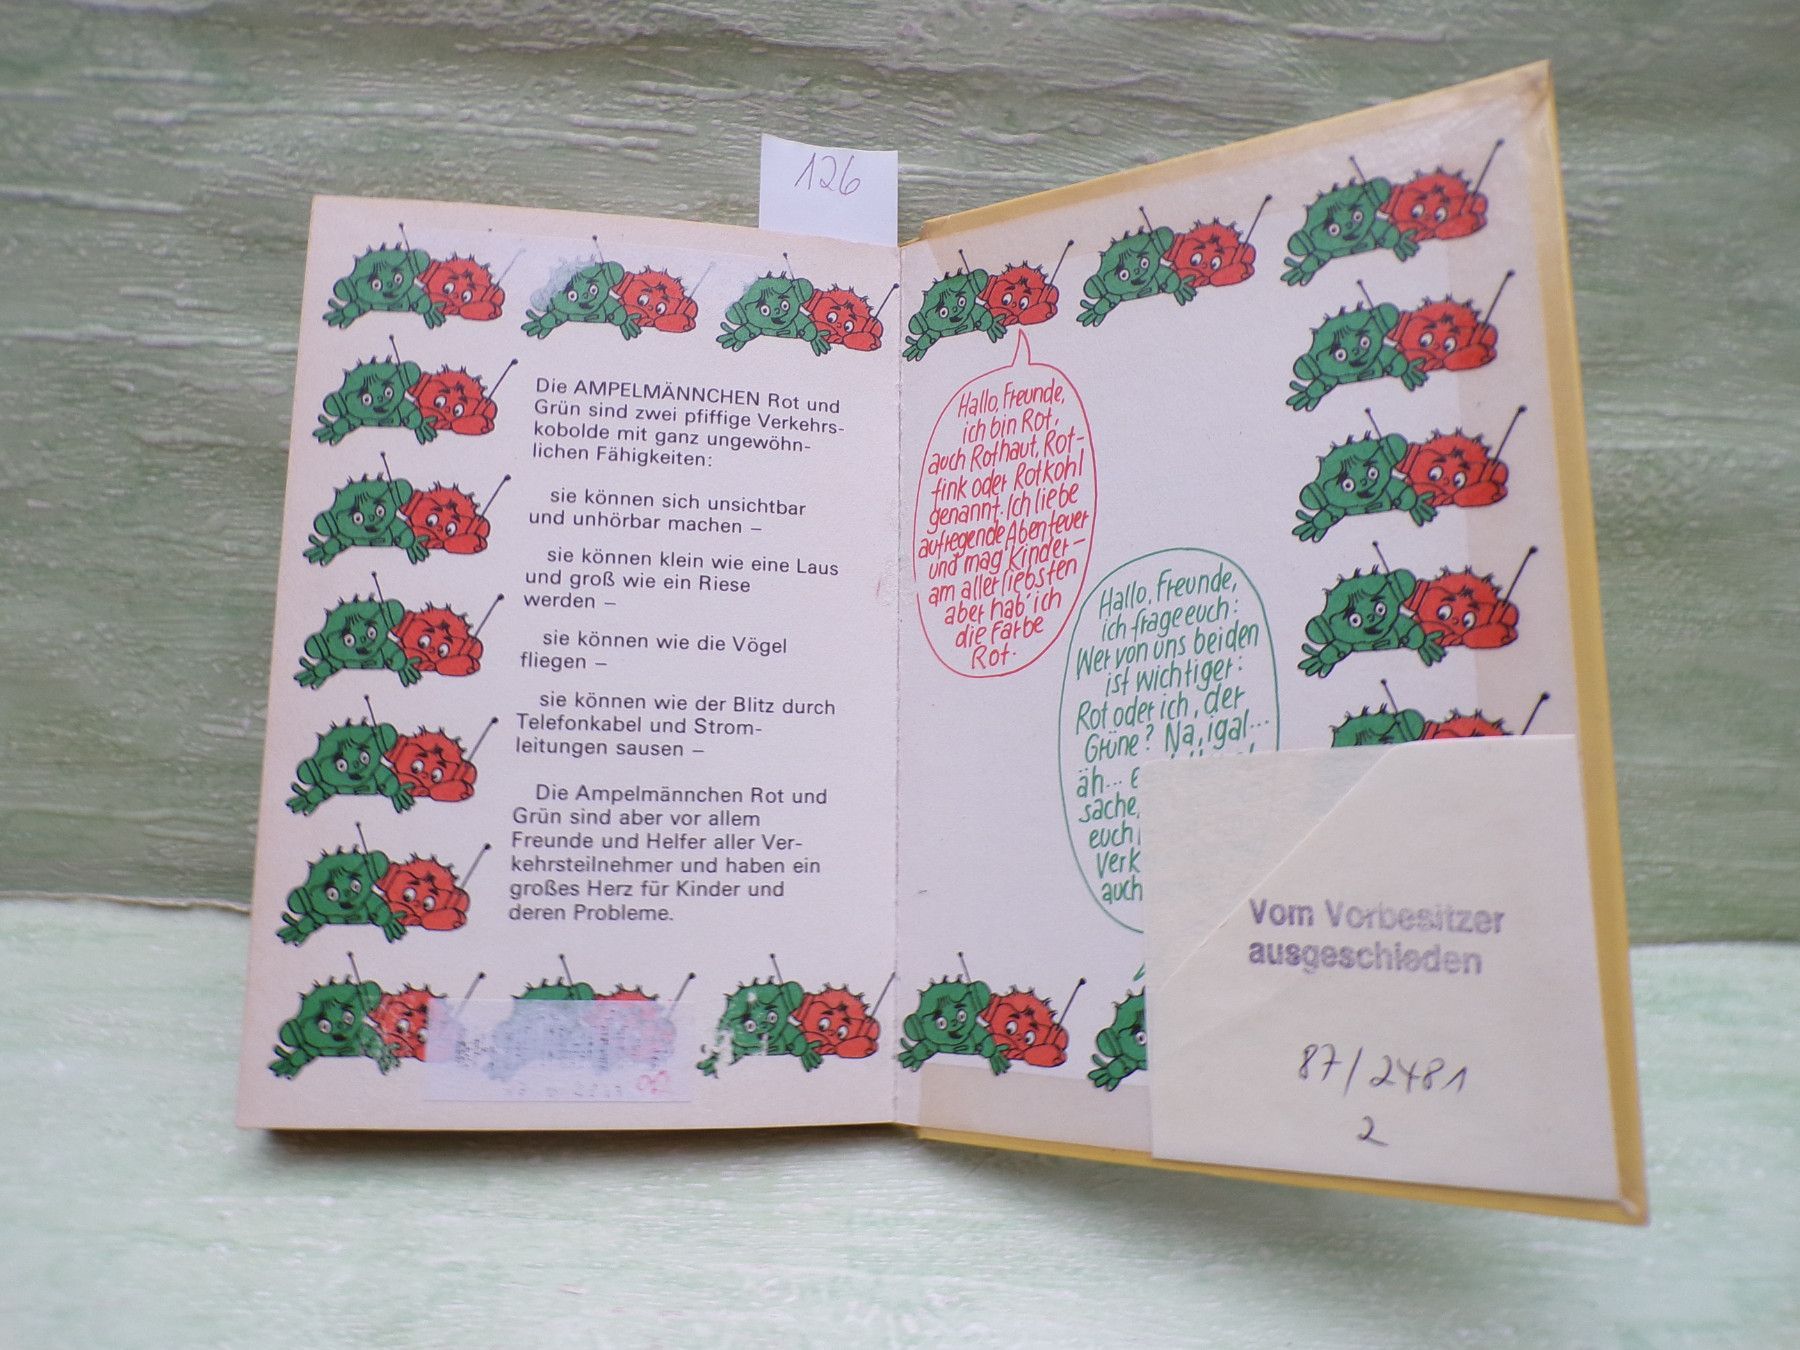 126
Die AMPELMÄNNCHEN Rot und
Grün sind zwei pfiffige Verkehrs-
kobolde mit ganz ungewöhn-
lichen Fähigkeiten:
sie können sich unsichtbar
und unhörbar machen –
sie können klein wie eine Laus
und groß wie ein Riese
werden –
sie können wie die Vögel
fliegen –
sie können wie der Blitz durch
Telefonkabel und Strom-
leitungen sausen –
Die Ampelmännchen Rot und
Grün sind aber vor allem
Freunde und Helfer aller Ver-
kehrsteilnehmer und haben ein
großes Herz für Kinder und
deren Probleme.
Hallo, Freunde,
ich bin Rot,
auch Rothaut, Rot-
fink oder Rotkohl
genannt. Ich liebe
aufregende Abenteuer
und mag Kinder –
am allerliebsten
aber hab' ich
die Farbe
Rot.
Hallo, Freunde,
ich frage euch:
Wer von uns beiden
ist wichtiger:
Rot oder ich, der
Grüne? Na, igal...
äh...
sache,
euch
Verk
auch
Vom Vorbesitzer
ausgeschieden
87/2481
2